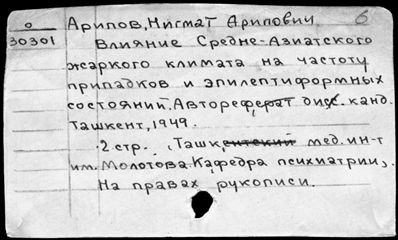 о Арипов, Нигмат Арипович б
30301 Влияние Средне-Азиатского
жаркого климата на частоту
припадков и эпилептиформных
состояний. Автореферат дис. канд.
Ташкент, 1949.
2 стр. (Ташкентский мед. ин-т
им. Молотова. Кафедра психиатрии).
На правах рукописи.